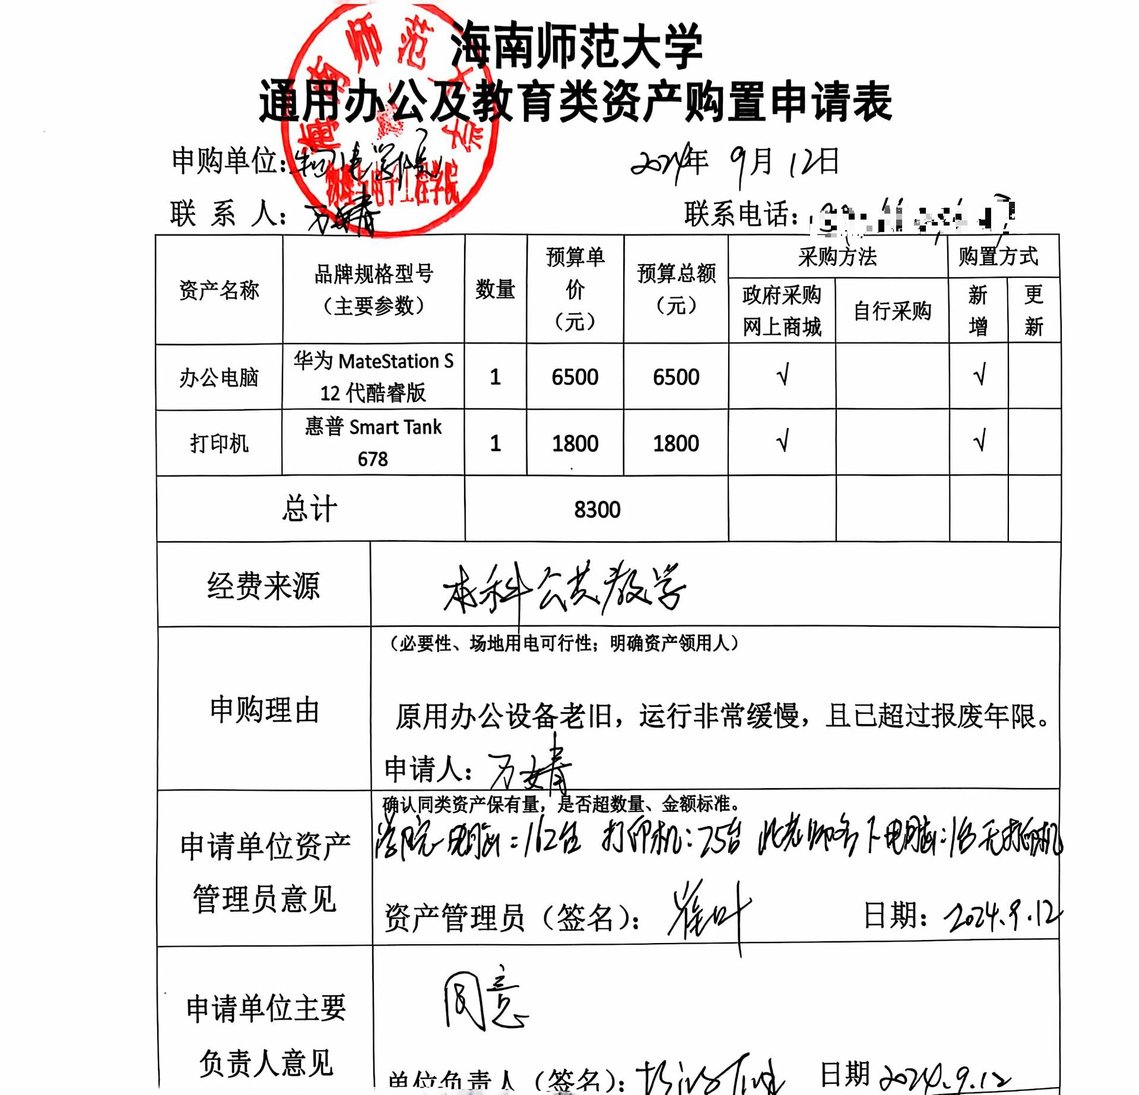 海南师范大学
通用办公及教育类资产购置申请表
海南师范大学
物理与电子工程学院
申购单位：物电学院 2024年9月12日
联系人：万婧 联系电话：
资产名称 品牌规格型号（主要参数） 数量 预算单价（元） 预算总额（元） 采购方法 购置方式
政府采购网上商城 自行采购 新增 更新
办公电脑 华为 MateStation S 12 代酷睿版 1 6500 6500 √ √
打印机 惠普 Smart Tank 678 1 1800 1800 √ √
总计 8300
经费来源 本科公共教学
申购理由 （必要性、场地用电可行性；明确资产领用人）
原用办公设备老旧，运行非常缓慢，且已超过报废年限。
申请人：万婧
申请单位资产管理员意见 确认同类资产保有量，是否超数量、金额标准。
学院电脑：162台 打印机：75台 此老师名下电脑：1台 无打印机
资产管理员（签名）：崔叶 日期：2024.9.12
申请单位主要负责人意见 同意
单位负责人（签名）： 日期 2024.9.12